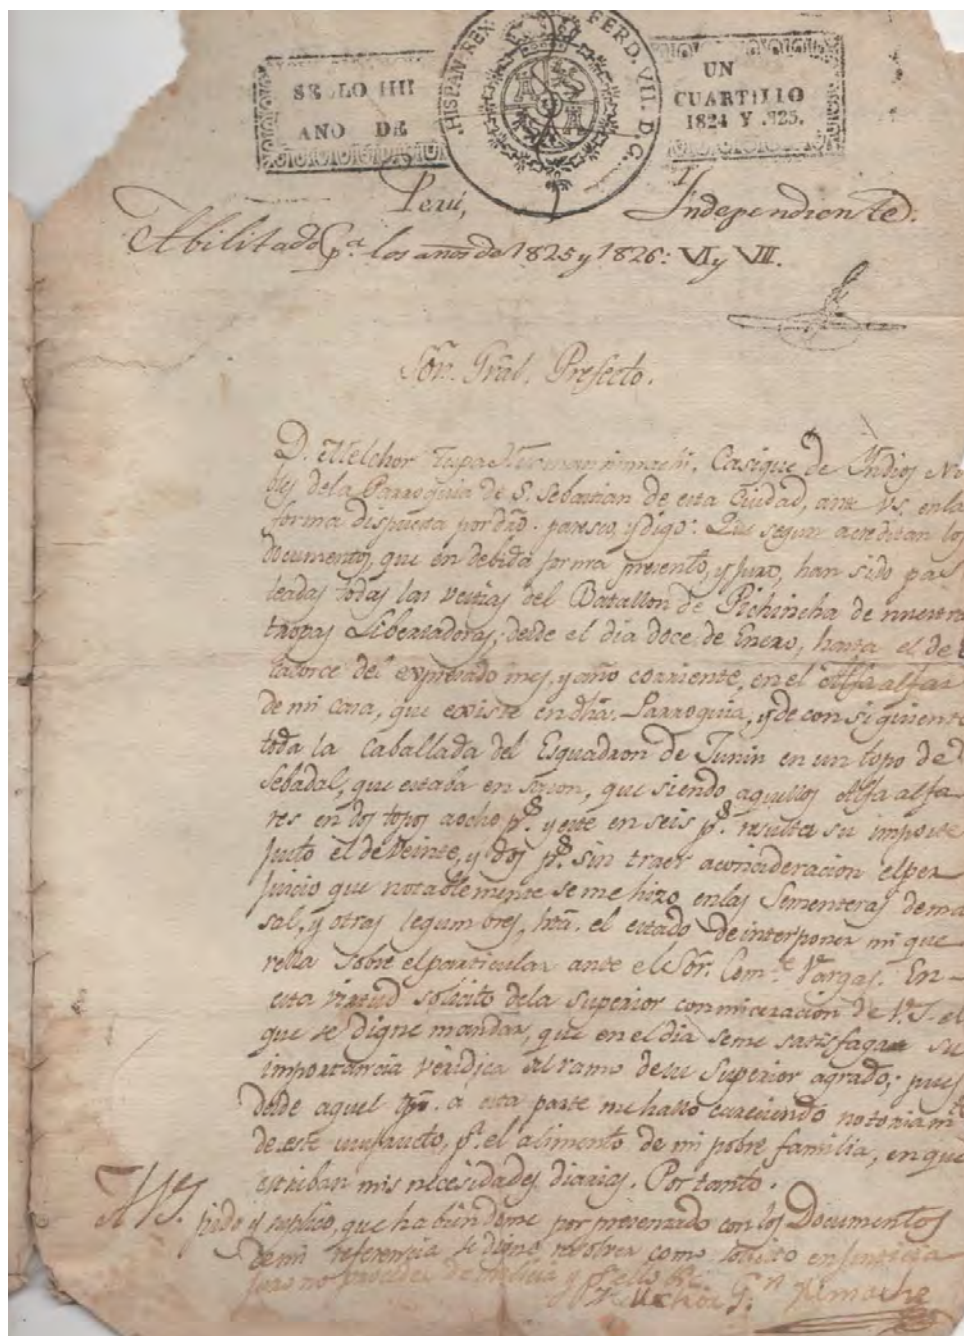 HISPAN. REX. FERD. VII. D. G.
SELLO IIII
AÑO DE
UN
CUARTILLO
1824 Y 825.
Perú, Independiente.
Abilitado pa. los años de 1825 y 1826: VI y VII.
Sor. Gral. Prefecto.
D. Melchor Casique de Yndios No
bles dela Parroquia de S. Sebastian de esta Ciudad, ante VS. enla
forma dispuesta por dro. paresco, y digo: Que segun acreditan los
documentos, que en debida forma presento, y juro, han sido pas
teadas todas las vestias del Batallon de Pichincha de nuestras
tropas Libertadoras, desde el dia doce de Enero, hasta el de C
atorce del expresado mes, y año corriente, en el Alfa alfar
de mi casa, que existe en dha. Parroquia, y de consiguiente
toda la Caballada del Esquadron de Junin en un topo de
Sebadal, que estaba en que siendo aquellos Alfa alfa
res en dos topos aocho ps. y este en seis ps. resulta su importe
justo el de veinte, y dos ps. sin traer aconcideracion el per
juicio que notablemente se me hizo enlas Sementeras de ma
sal, y otras legumbres, hta. el estado de interponer mi que
rella sobre el particular ante el Sor. Comte. Vargas. En
esta virtud solicito dela superior conmiceracion de V.S. el
que se digne mandar, que en el dia seme satisfaga su
importancia veridica al ramo de su Superior agrado; pues
desde aquel a esta parte me hallo careciendo notoriamte.
de este usufructo, pa. el alimento de mi pobre familia, en que
estriban mis necesidades diarias. Por tanto.
A VS. pido y suplico, que habiendome por presentado con los Documentos
de mi referencia se digne resolver como solicito en justicia
juro no proceder de malicia y